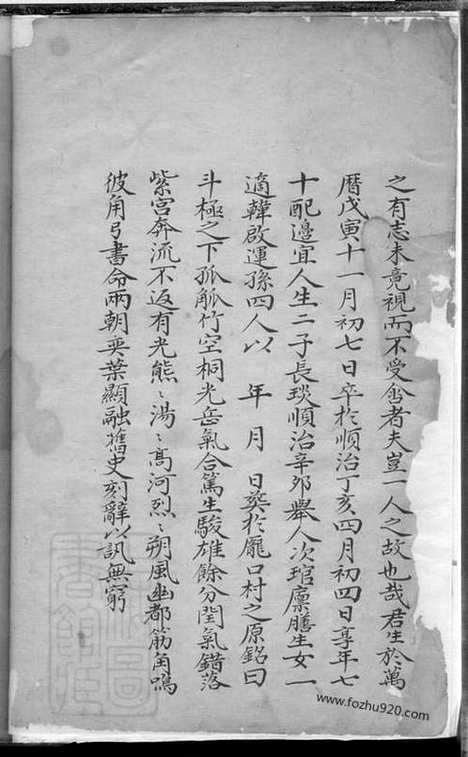 之有志未竟視而不受含者夫豈一人之故也哉君生於萬
曆戊寅十一月初七日卒於順治丁亥四月初四日享年七
十配邊宜人生二子長琰順治辛卯舉人次琯廩膳生女一
適韓啟運孫四人以　年　月　日葬於龐口村之原銘曰
斗極之下孤觚竹空桐光岳氣合篤生駿雄餘分閏氣錯落
紫宮奔流不返有光熊〻湯〻高河烈〻朔風幽都筋角鳴
彼角弓書命兩朝奕葉顯融舊史刻辭以訊無窮
www.fozhu920.com